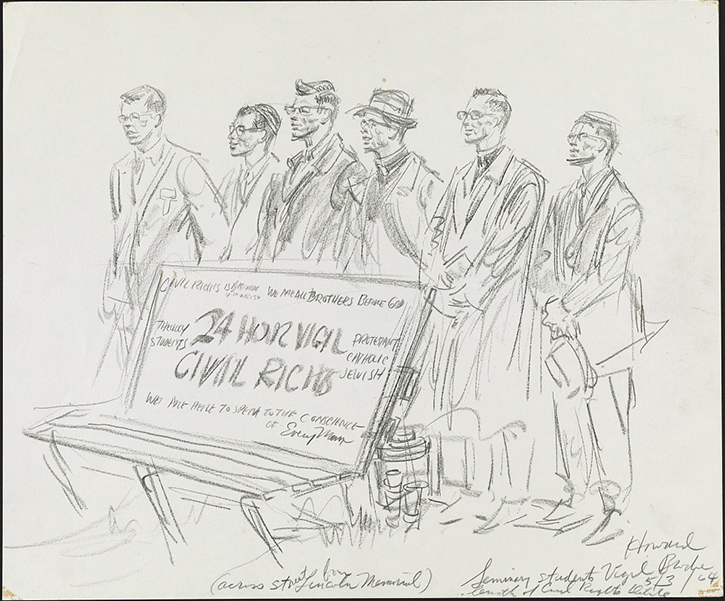 CIVIL RIGHTS IS WE ARE ALL BROTHERS BEFORE GOD
THEOLOGY
STUDENTS
24 HOR VIGIL
CIVIL RIGHTS
PROTESTANT
CATHOLIC
JEWISH
WE ARE HERE TO SPEAK TO THE CONSCIENCE
OF Every Man
(across street from Lincoln Memorial)
Howard
Brodie
Seminary students Vigil 5/3/64
length of Civil Rights debate